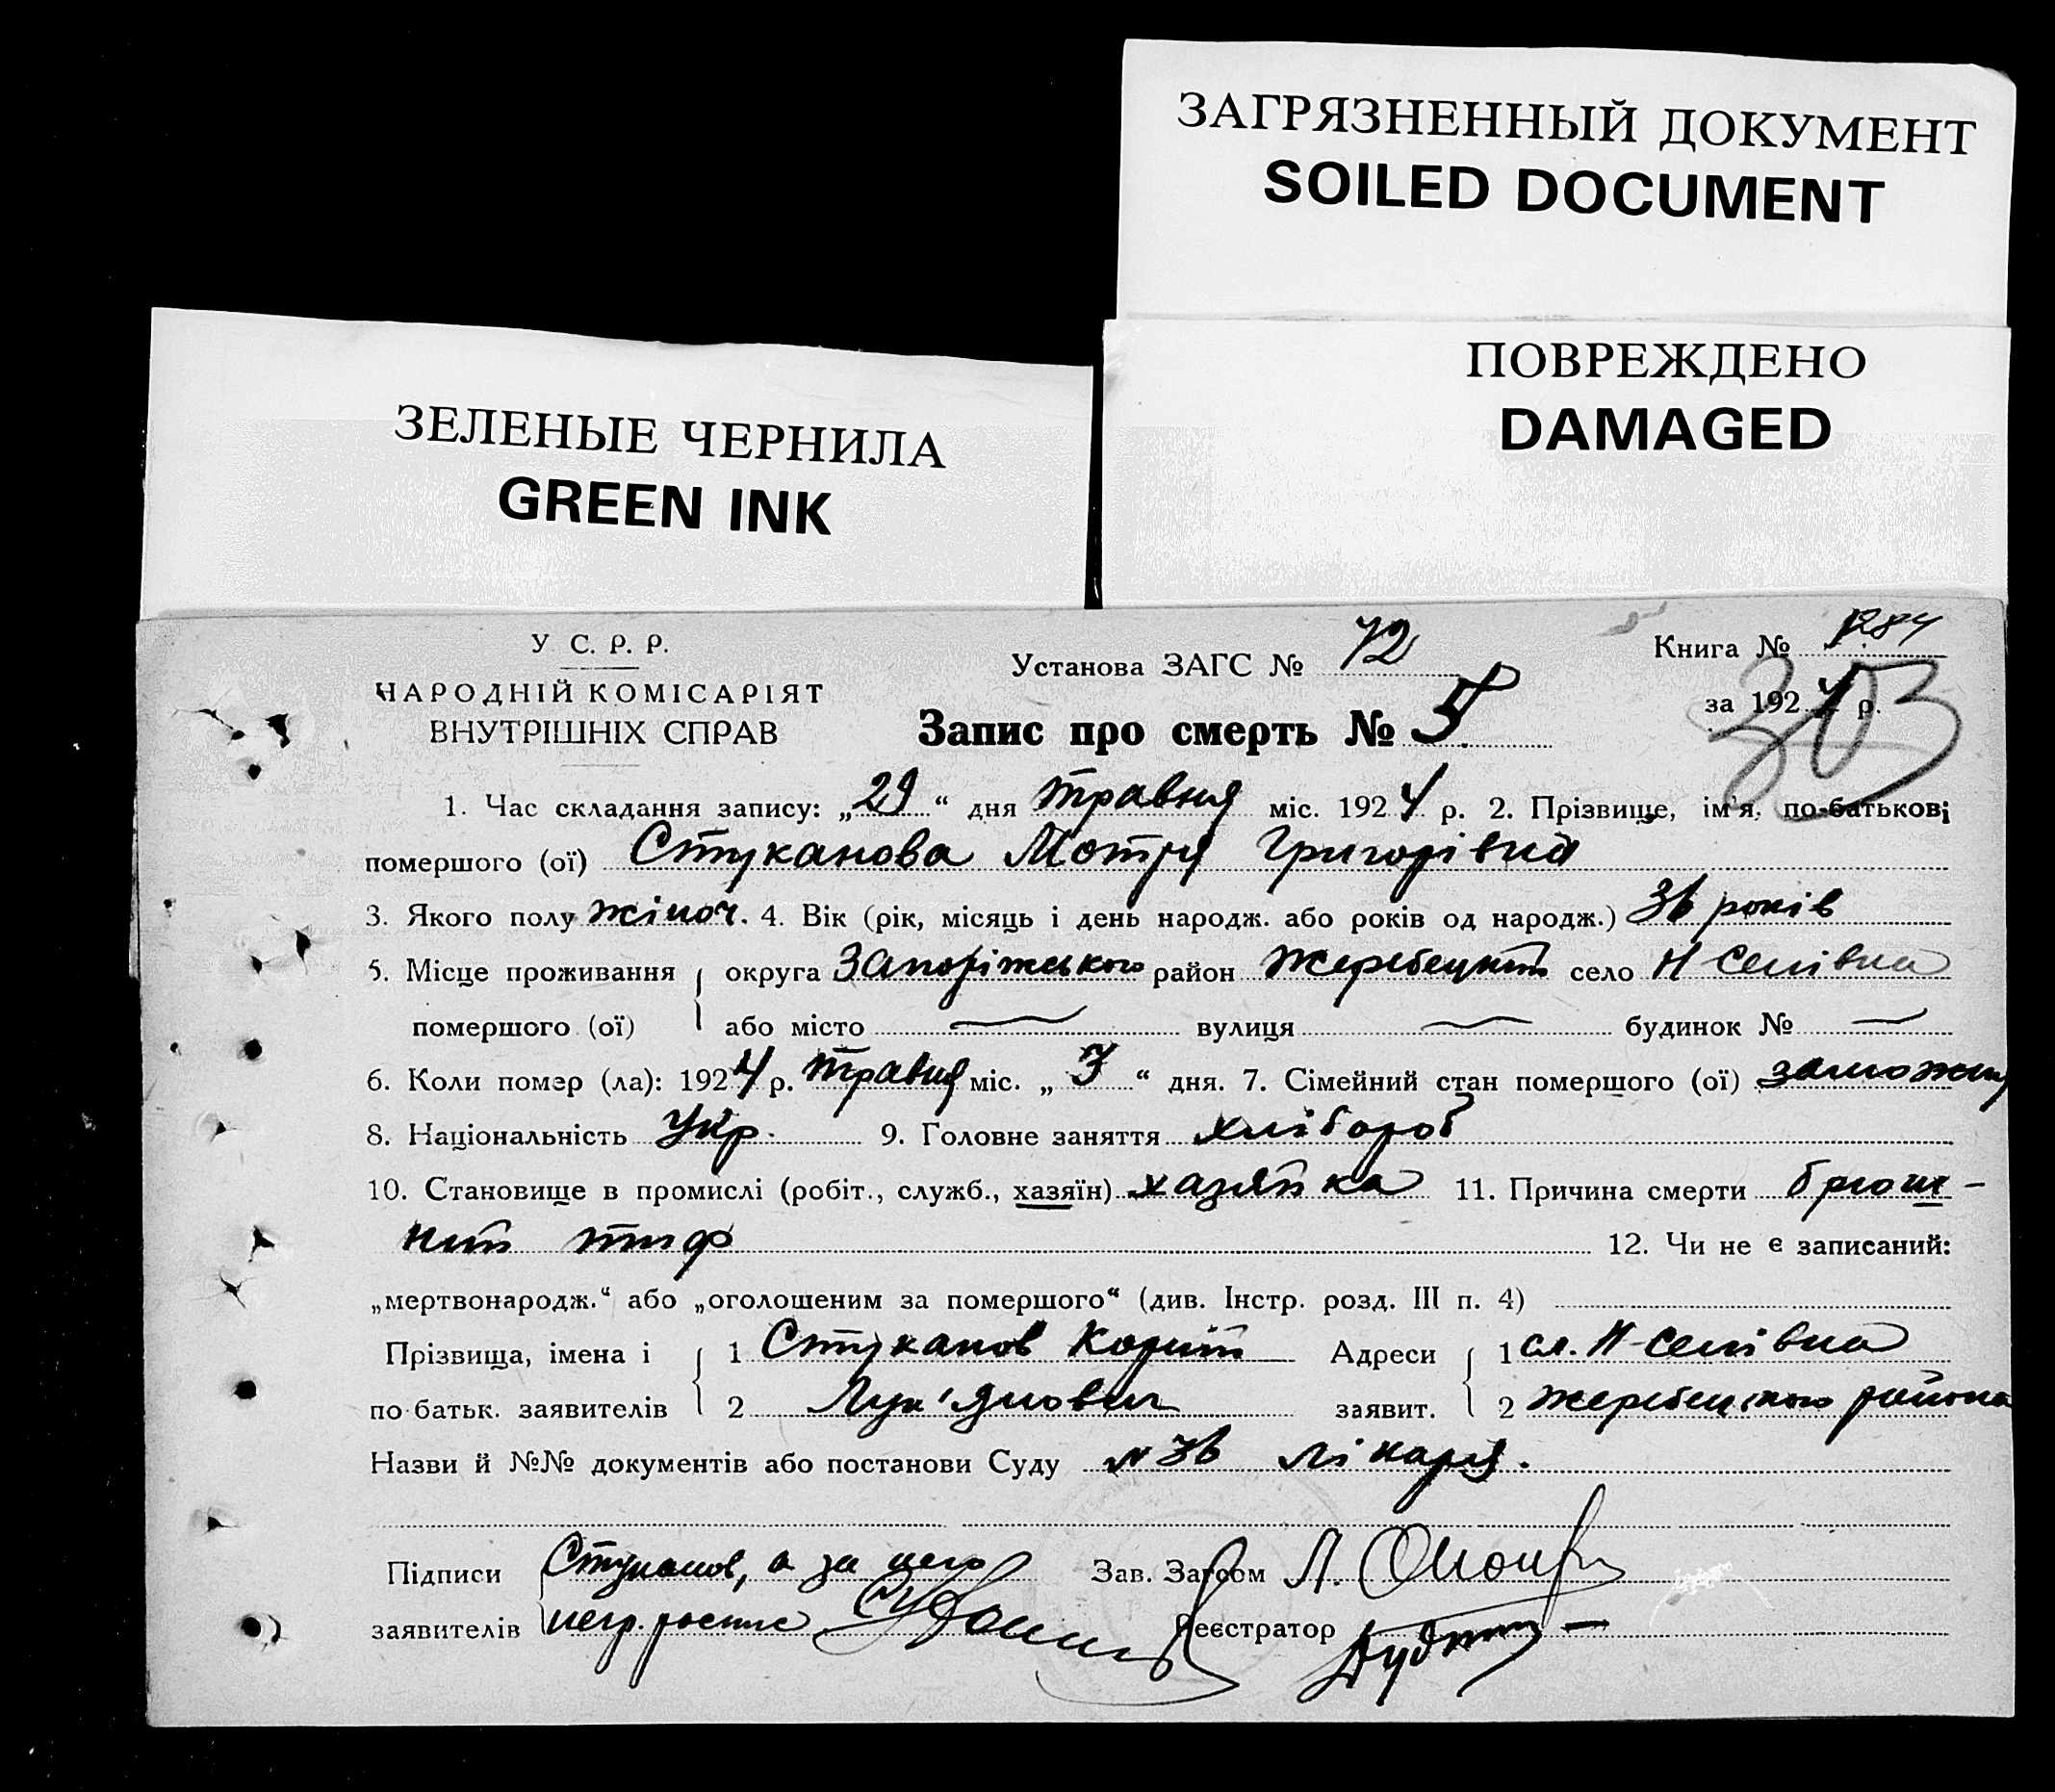 ЗАГРЯЗНЕННЫЙ ДОКУМЕНТ
SOILED DOCUMENT
ПОВРЕЖДЕНО
DAMAGED
ЗЕЛЕНЫЕ ЧЕРНИЛА
GREEN INK
У С. Р. Р.
НАРОДНІЙ КОМІСАРІЯТ
ВНУТРІШНІХ СПРАВ
Установа ЗАГС № 72
Запис про смерть № 5
Книга №
за 1924 р.
303
1. Час складання запису: „29“ дня травня міс. 1924 р. 2. Прізвище, ім'я, по-батькові
помершого (ої) Стуканова Мотря Григорівна
3. Якого полу жіноч. 4. Вік (рік, місяць і день народж. або років од народж.) 36 років
5. Місце проживання округа Запоріжського район село
помершого (ої) або місто — вулиця — будинок № —
6. Коли помэр (ла): 1924 р. травня міс. „3“ дня. 7. Сімейний стан помершого (ої) заможня
8. Національність Укр. 9. Головне заняття хлібороб
10. Становище в промислі (робіт., служб., хазяїн) хазяйка 11. Причина смерти брюш-
ний тиф 12. Чи не є записаний:
„мертвонародж.“ або „оголошеним за помершого“ (див. Інстр. розд. III п. 4)
Прізвища, імена і 1 Стуканов Адреси 1 сл.
по-батьк. заявителів 2 Лук'янович заявит. 2 района
Назви й №№ документів або постанови Суду № 36 лікаря.
Підписи Стуканов, а за него Зав. Загсом Л.
заявителів негр. роспис Реєстратор